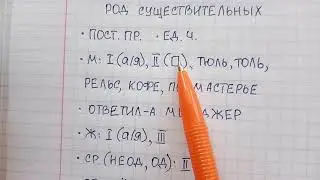 РОД СУЩЕСТВИТЕЛЬНЫХ
• ПОСТ. ПР. • ЕД. Ч.
• М: I (а/я), II (□), ТЮЛЬ, ТОЛЬ,
РЕЛЬС, КОФЕ,
• ОТВЕТИЛ-А
• Ж: I (а/я), III
• СР (НЕОД, ОД): II